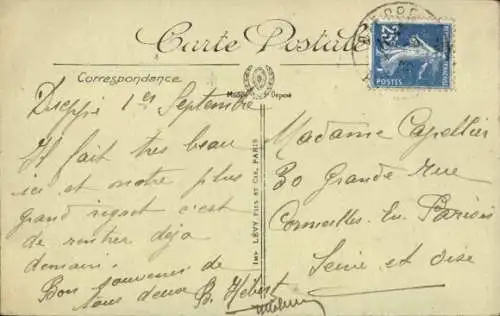 Carte Postale
Correspondance
Modèle Déposé
Dieppe 1er Septembre
Il fait tres beau
ici et notre plus
grand regret c'est
de rentrer déja
demain.
Bon souvenir de
tous deux B. Hébert
IMP. LÉVY FILS ET CIE, PARIS
25
POSTES
Madame Capellier
30 Grande Rue
Cormeilles-En Parisis
Seine et Oise